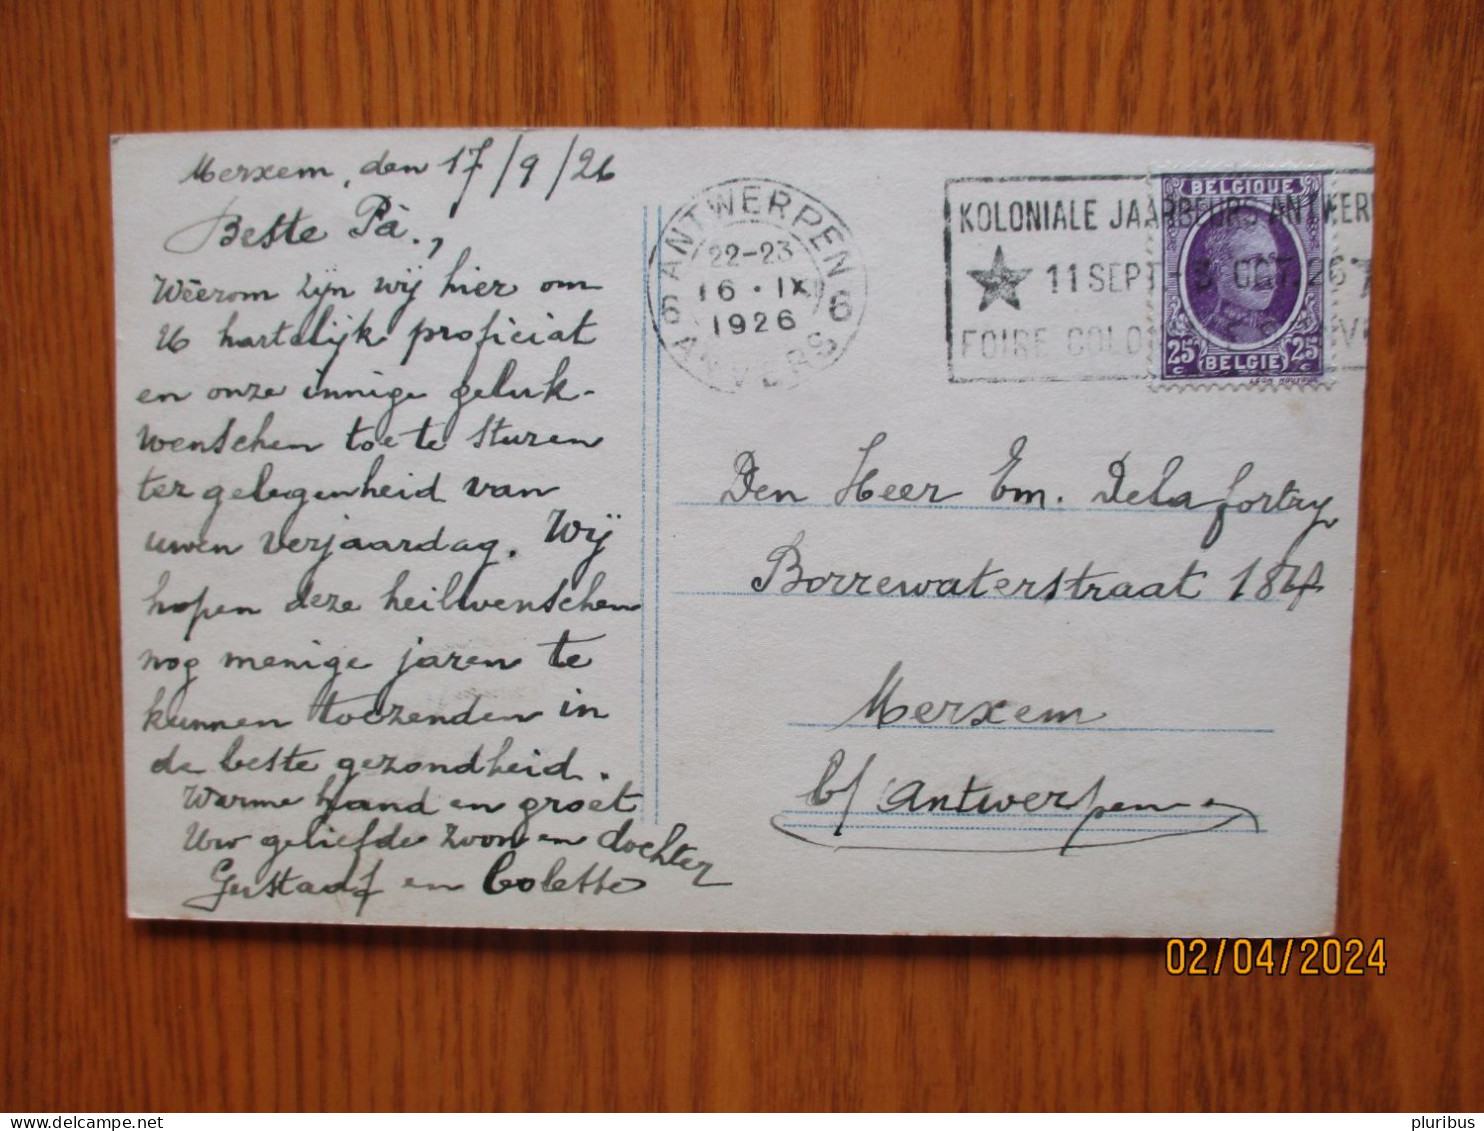 Merxem, den 17/9/26
Beste Pà.,
Wéerom zijn wij hier om
U hartelijk proficiat
en onze innige geluk-
wenschen toe te sturen
ter gelegenheid van
uwen verjaardag. Wij
hopen deze heilwenschen
nog menige jaren te
kunnen toezenden in
de beste gezondheid.
Warme hand en groet
Uw geliefde zoon en dochter
Gustaaf en Colette
ANTWERPEN
6 6
22-23
16·IX
1926
ANVERS
KOLONIALE JAARBEURS ANTWER
11 SEPT - 3 OCT 26
FOIRE COLON
BELGIQUE
25c 25c
BELGIE
Den Heer Em. Delafortry
Borrewaterstraat 184
Merxem
b/ Antwerpen
02/04/2024
pluribus